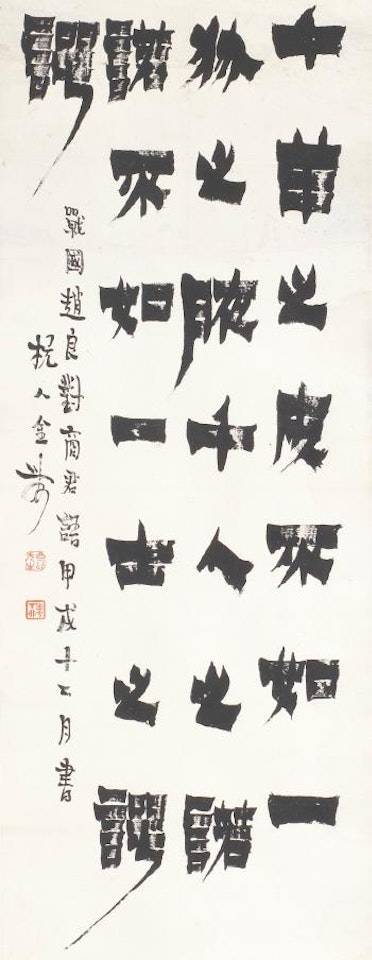 千羊之皮不如一
狐之腋千人之諾
諾不如一士之諤
諤
戰國趙良對商君語甲戌十二月書
杭人金農